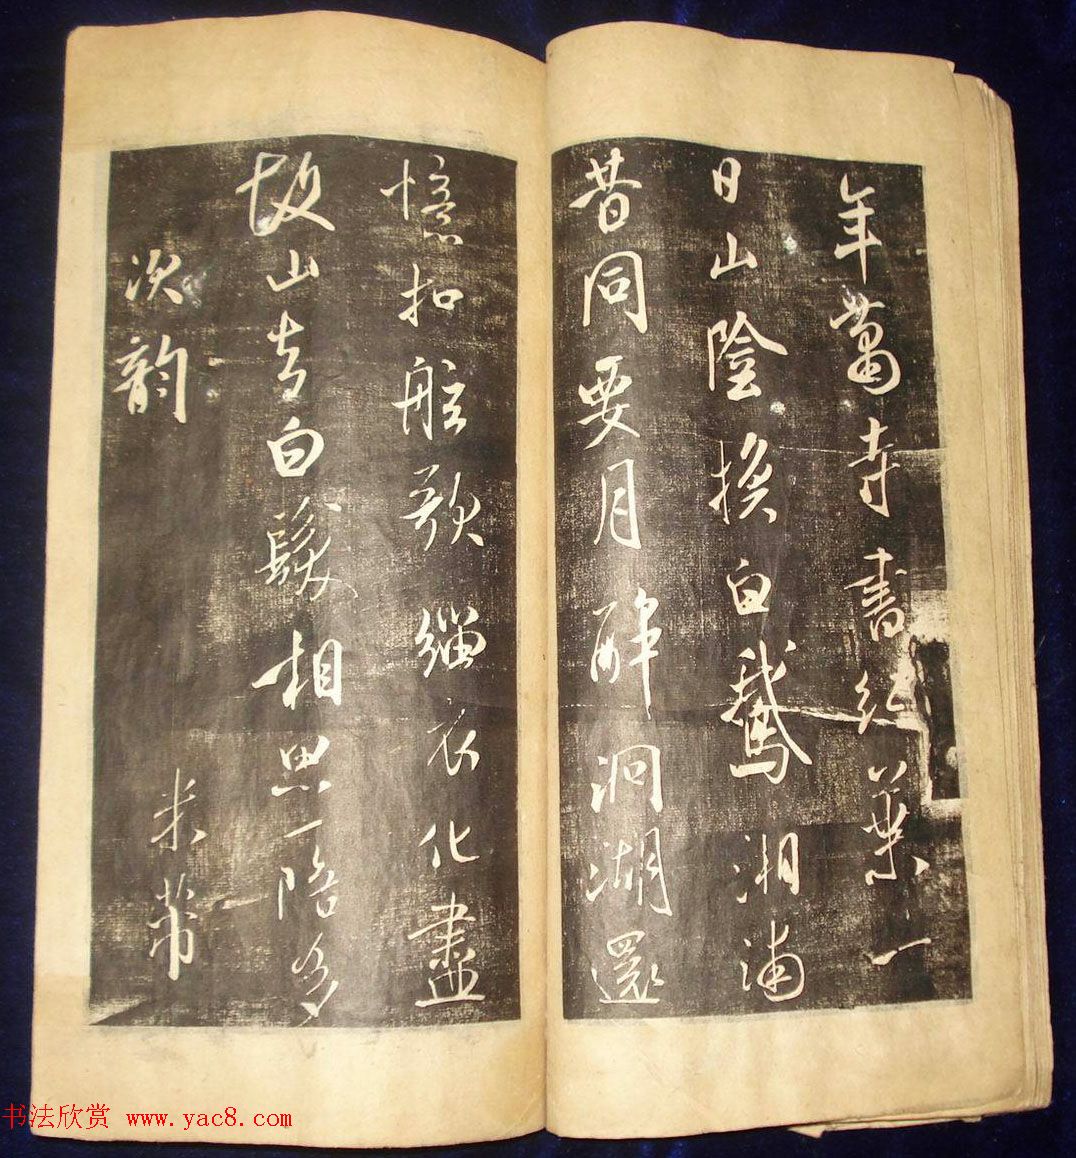 年蕭寺書紅葉一
日山陰換白鵝湘浦
昔同要月醉洞湖還
憶扣舷歌緇衣化盡
故山去白髮相思一陪多
次韵
米芾
书法欣赏 www.yac8.com